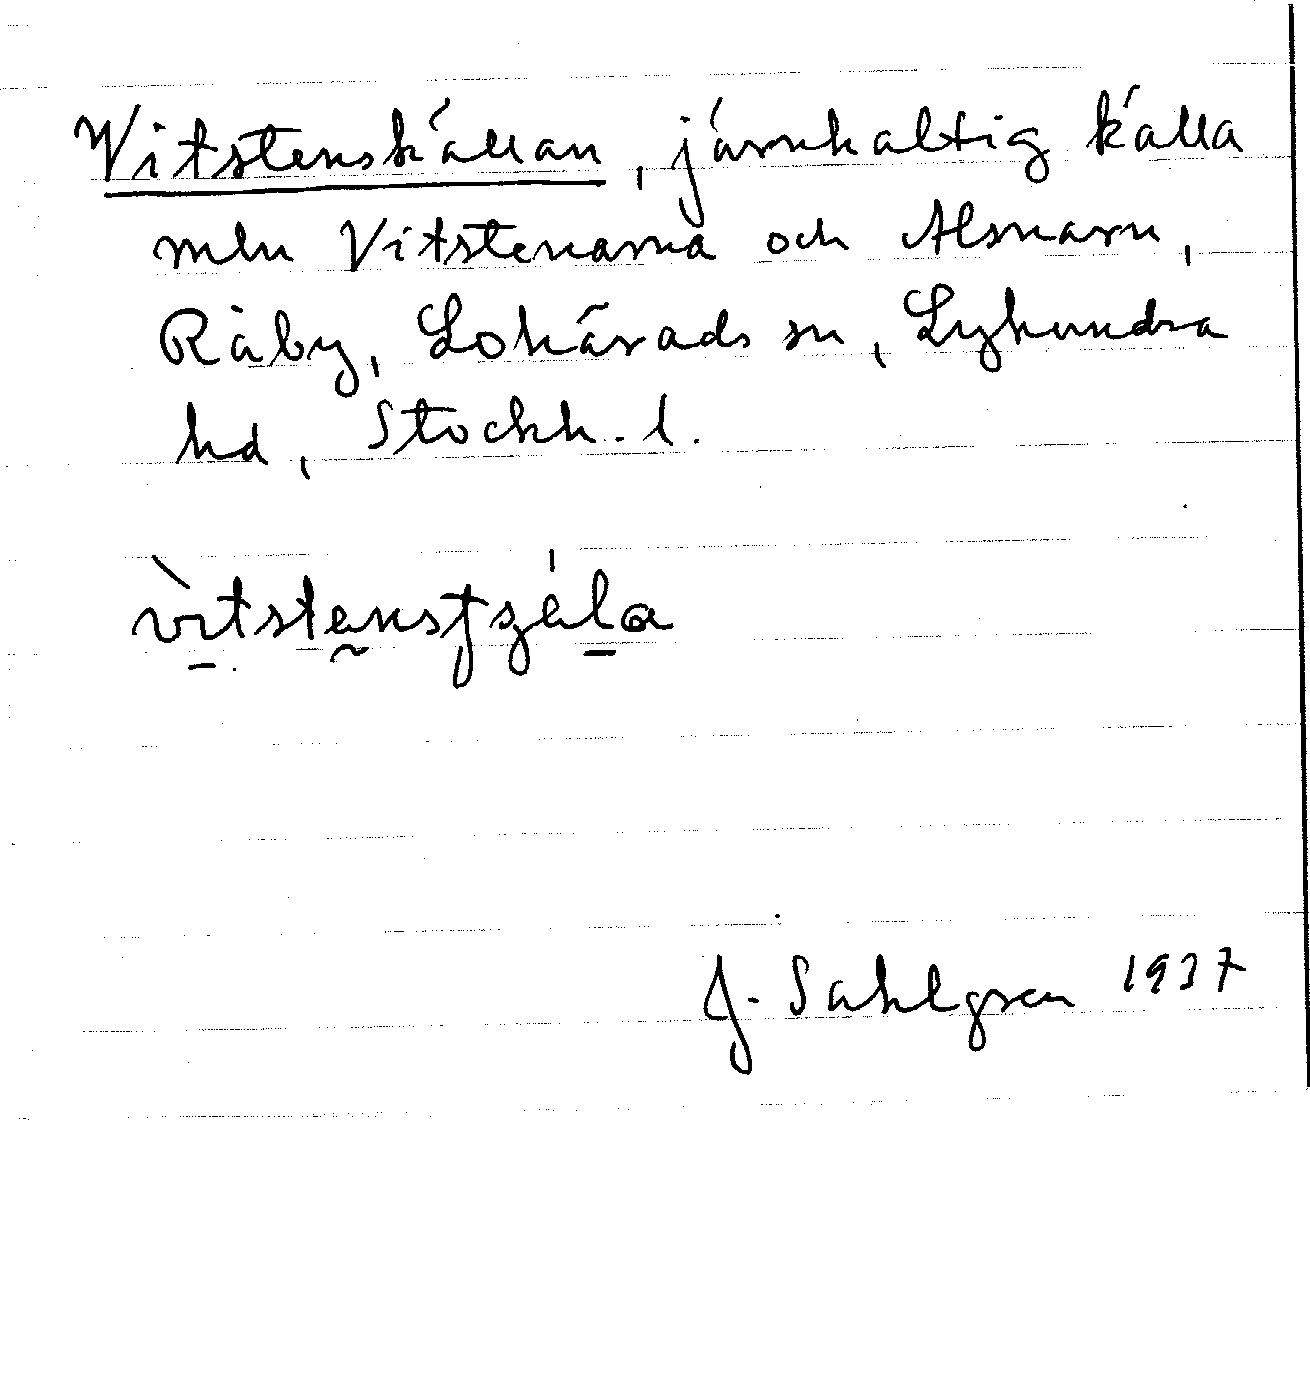 Witstenskällan, järnhaltig källa
mln Vitstenarna och Alsmarn,
Råby, Lohärads sn, Lyhundra
hd, Stockh. l.
J. Sahlgren 1937